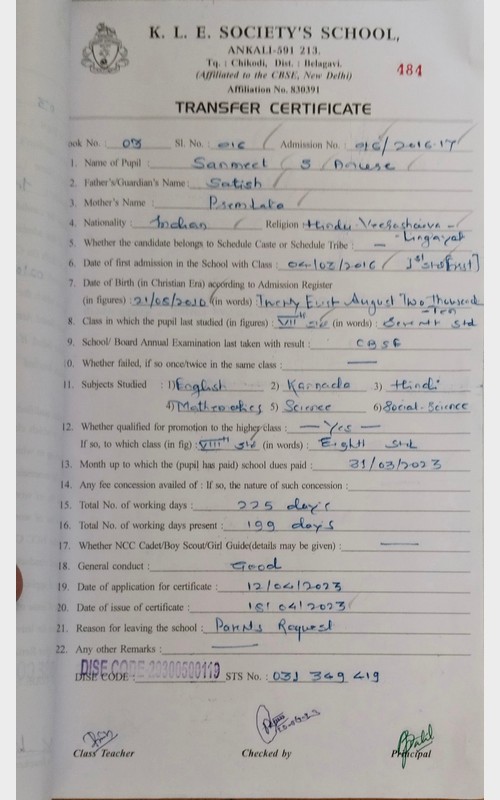 K. L. E. SOCIETY'S SCHOOL,
ANKALI-591 213.
Tq. : Chikodi, Dist. : Belagavi.
(Affiliated to the CBSE, New Delhi)
484
Affiliation No. 830391
TRANSFER CERTIFICATE
ook No. 03 Sl. No. : 016 Admission No. 016/2016-17
1. Name of Pupil : Sanmeet S
2. Father's/Guardian's Name : Satish
3. Mother's Name : Premlata
4. Nationality : Indian Religion : Hindu Veerashaiva -
Lingayat
5. Whether the candidate belongs to Schedule Caste or Schedule Tribe : —
6. Date of first admission in the School with Class : 04/03/2016 1st Std [First]
7. Date of Birth (in Christian Era) according to Admission Register
(in figures) 21/08/2010 (in words) Twenty First August Two Thousand
Ten
8. Class in which the pupil last studied (in figures) : VIIth std (in words) : Seventh Std
9. School/ Board Annual Examination last taken with result : CBSE
0. Whether failed, if so once/twice in the same class : —
11. Subjects Studied : 1) English 2) Kannada 3) Hindi
4) Mathematics 5) Science 6) Social-Science
12. Whether qualified for promotion to the higher class : — Yes —
If so, to which class (in fig) : VIIIth std (in words) : Eighth Std
13. Month up to which the (pupil has paid) school dues paid : 31/03/2023
14. Any fee concession availed of : If so, the nature of such concession :
15. Total No. of working days : 225 days
16. Total No. of working days present : 199 days
17. Whether NCC Cadet/Boy Scout/Girl Guide(details may be given) : —
18. General conduct : Good
19. Date of application for certificate : 12/04/2023
20. Date of issue of certificate : 15/04/2023
21. Reason for leaving the school : Parents Request
22. Any other Remarks : —
DISE CODE : DISE CODE - STS No. : 031 349 419
Class Teacher Checked by Principal